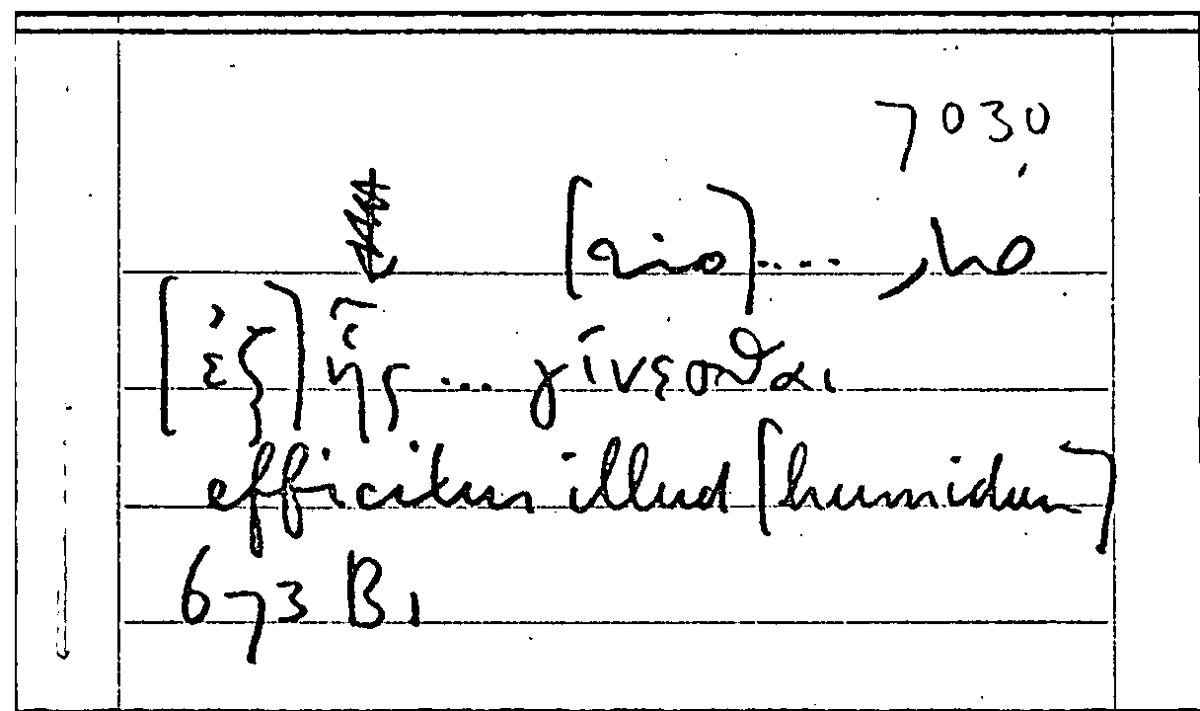 7030
[ἐξ] ἧς ... γίνεσθαι
efficitur illud [humidum]
673 B1